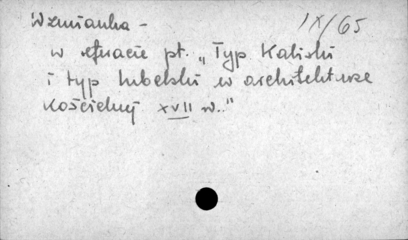 Wzmianka - IX/65
w referacie pt. „Typ Kaliski
i typ lubelski w architekturze
kościelnej XVII w.."